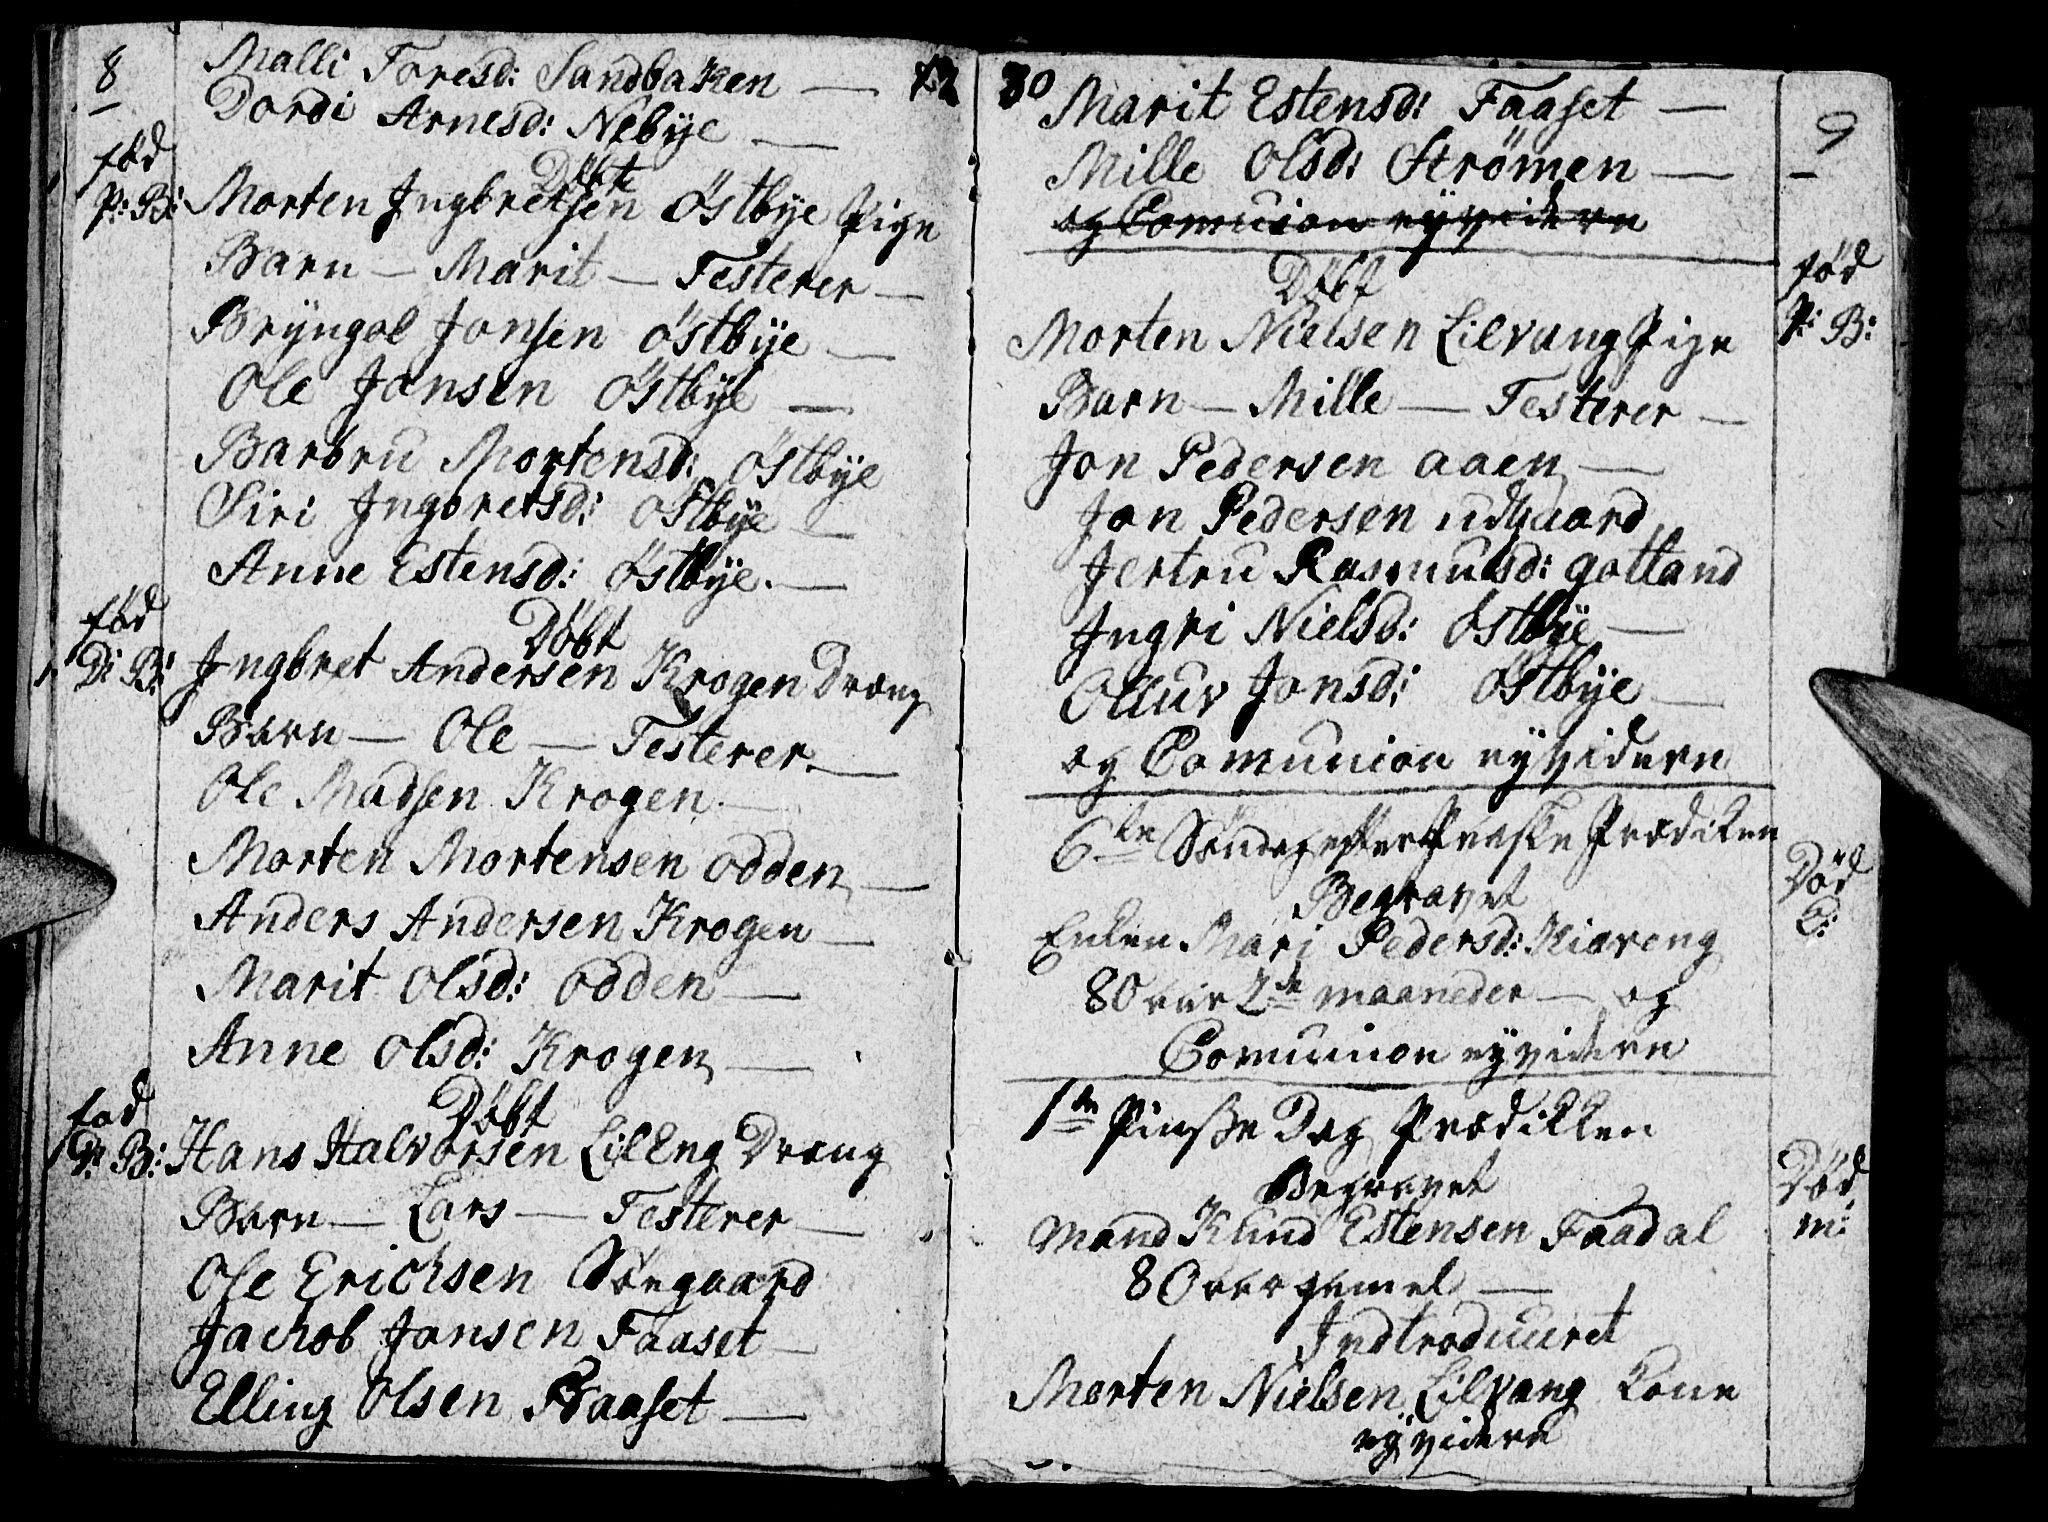 8
Malli Toresd: Sandbaken —
Dordi Arnesd: Nebÿe —
fød
P: B:
Döbt
Morten Jngbretsen Östbÿe Pige
Barn — Marit — Testerer —
Brÿngel Jonsen östbÿe —
Ole Jonsen östbÿe —
Barbru Mortensd: östbÿe
Siri Jngbretsd: östbÿe —
Anne Estensd: östbÿe. —
fød
D: B:
Döbt
Jngbret Andersen Krogen Dreng
Barn — Ole — Testerer. —
Ole Madsen Krogen. —
Morten Mortensen odden —
Anders Andersen Krogen —
Marit olsd: odden —
Anne olsd: Krogen —
fød
D: B:
Döbt
Hans Halvorsen LilEng Dreng
Barn — Lars — Testerer —
Ole Erichsen Söegaard
Jachob Jonsen Faaset —
Elling Olsen Faaset —
30
9
Marit Estensd: Faaset —
Mille olsd: Strömen —
og Comunion eÿ videre
Döbt
fød
P: B:
Morten Nielsen Lilvang Pige
Barn — Mille — Testerer —
Jon Pedersen aaen —
Jon Pedersen udgaard
Jertru Rasmusd: gotland
Jngri Nielsd: östbÿe —
Olluv Jonsd: östbÿe —
og Comunion eÿ videre
6te Söndag efter Paaske Prædiken
Begravet
Död
E:
Enken Mari Pedersd: Kiæreng
80 aar 2de maaneder — og
Comunion eÿ videre
1te Pinsse Dag Prædikken
Begravet
Död
m:
Mand Knud Estensen Faadal
80 aar gamel —
Jndtroduuret
Morten Nielsen Lilvang kone
eÿ videre